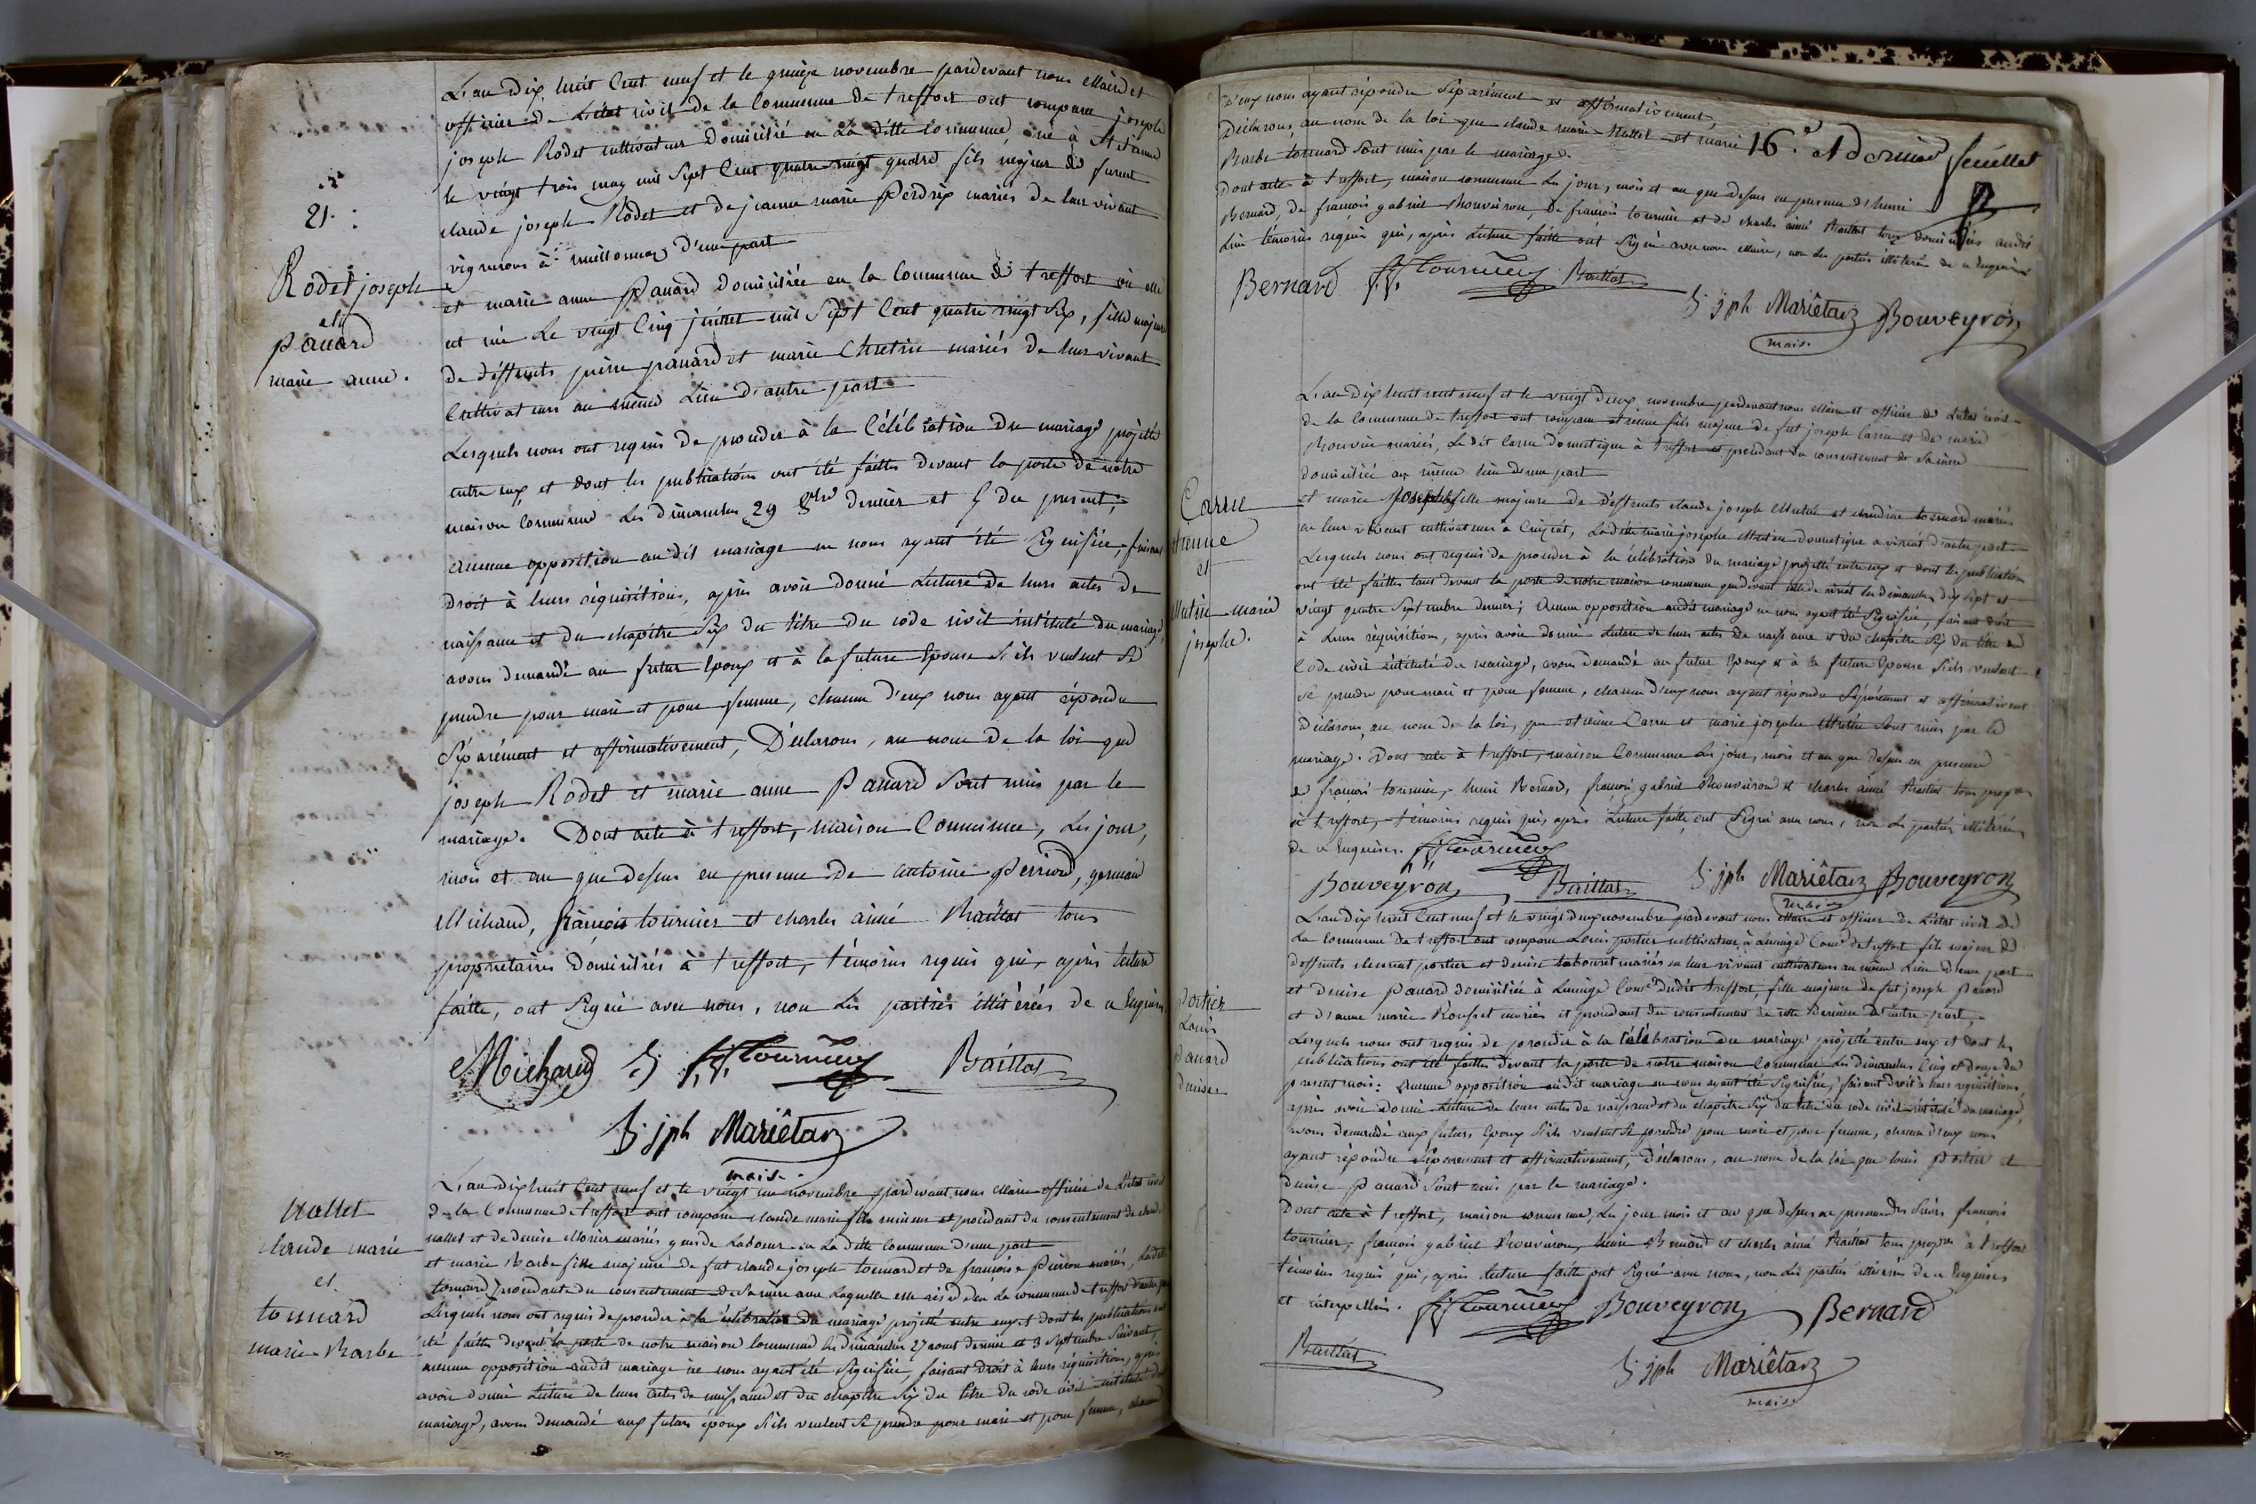 21.
Rodet joseph
et
panard
marie anne.
L'an dix huit Cent neuf et le quinze novembre pardevant nous Maire et
officier de L'état civil de la Commune de treffort ont comparu joseph
joseph Rodet cultivateur domicilié en La ditte Commune né à St Etienne
le vingt trois may mil Sept Cent quatre vingt quatre fils majeur de furent
claude joseph Rodet et de jeanne marie Perdrix mariés de leur vivant
vignerons à meillonnaz d'une part
et marie anne panard domiciliée en la Commune de treffort où elle
est née Le vingt Cinq juillet mil Sept Cent quatre vingt Six, fille majeure
de deffunts pierre panard et marie Chretin mariés de leur vivant
Cultivateurs au même Lieu d'autre part
Lesquels nous ont requis de proceder à la Célébration du mariage projetté
entre eux et dont les publications ont été faittes devant la porte de notre
maison Commune Les dimanches 29 8bre dernier et 5 du present;
aucune opposition au dit mariage ne nous ayant été Signifiée, faisant
droit à leurs réquisitions, après avoir donné Lecture de leurs actes de
naissance et du chapitre Six du titre du code civil intitulé du mariage,
avons demandé au futur Epoux et à la future Epouse S'ils veulent Se
prendre pour mari et pour femme, chacun d'eux nous ayant répondu
Séparément et affirmativement, Déclarons, au nom de la loi que
joseph Rodet et marie anne Panard Sont unis par le
mariage. Dont acte à treffort, maison Commune, Les jour,
mois et an que dessus en presence de antoine Perriod, germain
Michaud, françois tournier et charles aimé Baillat tous
proprietaires domiciliés à treffort, témoins requis qui, après lecture
faitte, ont Signé avec nous, non Les parties illitérées de ce Enquises
Michaud f. f. Tournier Baillat
jph Mariêtan
maire
Nallet
claude marie
et
tournard
marie Barbe
L'an dix huit Cent neuf et le vingt un novembre pardevant nous Maire officier de L'état civil
de la Commune de treffort ont comparu claude marie fils mineur et procedant du consentement de claude
nallet et de denise Morier mariés gens de Labeur en La ditte Commune d'une part
et marie Barbe fille majeure de fut claude joseph tournard et de françoise Perron mariés, Laditte
tournard procedante du consentement de Sa mère avec Laquelle elle reside en La commune de treffort d'autre part
Lesquels nous ont requis de proceder à la célébration du mariage projetté entre eux et dont les publications ont
été faittes devant la porte de notre maison Commune les dimanches 27 aout dernier et 3 Septembre Suivant,
aucune opposition audit mariage ne nous ayant été Signifiée, faisant droit à leurs réquisitions, après
avoir donné Lecture de leurs actes de naissance et du chapitre Six du titre du code civil intitulé du
mariage, avons demandé aux futurs époux S'ils veulent Se prendre pour mari et pour femme, chacun
d'eux nous ayant répondu Séparément et affirmativement,
Déclarons, au nom de la loi que claude marie Nallet et marie
Barbe tournard Sont unis par le mariage.
16.e et dernier feuillet
Dont acte à treffort, maison commune Les jour, mois et an que dessus en presence d'henri
Bernard, de françois gabriel Bouveiron, de françois tournier et de charles aimé Baillat tous domiciliés audit
Lieu témoins requis qui, après Lecture faitte ont Signé avec nous Maire, non Les parties illitérées de ce Enquises
Bernard f. f. Tournier Baillat
jph Mariêtan Bouveyron
maire
Carru
etienne
et
Mutin marie
josephe.
L'an dix huit cent neuf et le vingt deux novembre pardevant nous Maire et officier de L'état civil
de la Commune de treffort ont comparu etienne fils majeur de fut joseph Carru et de marie
Bouvier mariés, Le dit Carru domestique à treffort et procedant du consentement de Sa mère
domiciliée au même lieu d'une part
et marie josephe fille majeure de deffunts claude joseph Mutin et claudine tournard mariés
en leur vivant cultivateurs à Cuiziat, Laditte marie josephe Mutin domestique a d'autre part
Lesquels nous ont requis de proceder à la célébration du mariage projetté entre eux et dont les publications
ont été faittes tant devant la porte de notre maison commune que devant celle de les dimanches dix sept et
vingt quatre Septembre dernier; Aucune opposition audit mariage ne nous ayant été Signifiée, faisant droit
à Leurs réquisitions, après avoir donné Lecture de leurs actes de naissance et du chapitre Six du titre du
Code civil intitulé du mariage, avons demandé au futur Epoux et à la future Epouse S'ils veulent
Se prendre pour mari et pour femme, chacun d'eux nous ayant répondu Séparément et affirmativement
déclarons, au nom de la loi, que etienne Carru et marie josephe Mutin Sont unis par le
mariage. Dont acte à treffort, maison Commune Les jour, mois et an que dessus en presence
de françois tournier, henri Bernard, françois gabriel Bouveiron et charles aimé Baillat tous propres
à treffort, témoins requis qui, après Lecture faitte, ont Signé avec nous, non Les parties illitérées
de ce Enquises. f. f. Tournier
Bouveyron Baillat jph Mariêtan Bouveyron
Portier
Louis
Panard
denise
L'an dix huit Cent neuf et le vingt deux novembre pardevant nous Maire et officier de L'état civil de
La Commune de treffort ont comparu Louis portier cultivateur à Comne de treffort fils majeur de
deffunts clement portier et denise tabouret mariés en leur vivant cultivateurs au même Lieu d'une part
et denise panard domiciliée à Comne dudit treffort, fille majeure de fut joseph Panard
et d'anne marie mariés et procedant du consentement de cette derniere d'autre part,
Lesquels nous ont requis de proceder à la Célébration du mariage projetté entre eux et dont les
publications ont été faittes devant la porte de notre maison Commune Les dimanches Cinq et douze du
present mois: Aucune opposition audit mariage ne nous ayant été Signifiée, faisant droit à leurs réquisitions,
après avoir donné Lecture de leurs actes de naissance et du chapitre Six du titre du code civil intitulé du mariage,
avons demandé aux futurs Epoux S'ils veulent Se prendre pour mari et pour femme, chacun d'eux nous
ayant répondu Séparement et affirmativement, déclarons, au nom de la loi que louis Portier et
denise Panard Sont unis par le mariage.
Dont acte à treffort, maison commune, Les jour mois et an que dessus en presence des Sieurs françois
tournier, françois gabriel Bouveiron, henri Bernard et charles aimé Baillat tous propres à treffort
témoins requis qui, après lecture faitte ont Signé avec nous, non Les parties illitérées de ce Enquises
et interpellées. f. f. Tournier Bouveyron Bernard
Baillat jph Mariêtan
maire